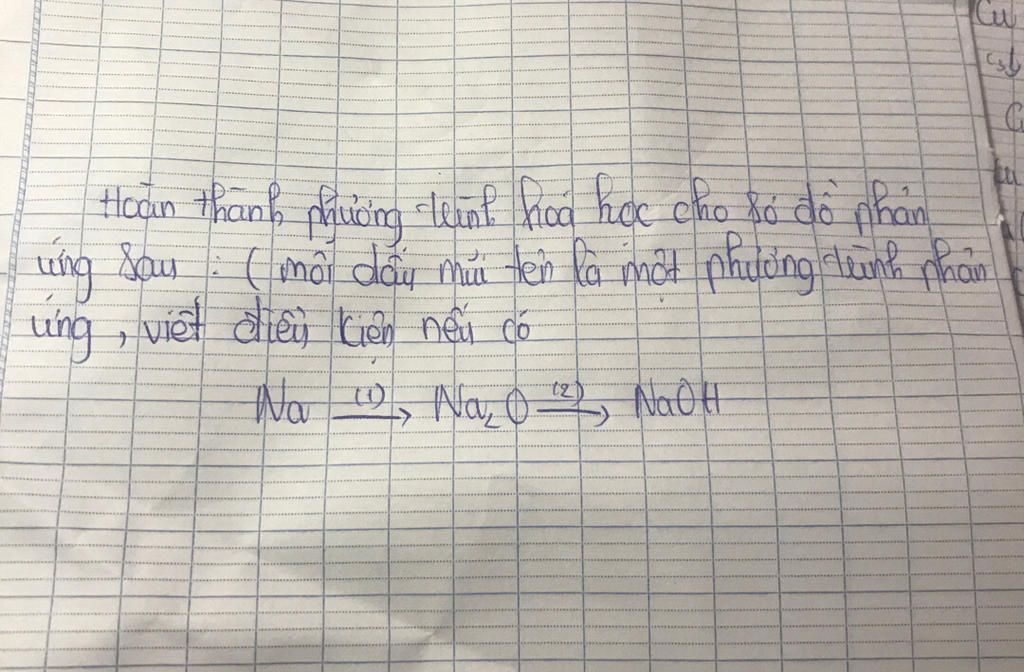 Hoàn thành phương trình hoá học cho sơ đồ phản
ứng sau : ( mỗi dấu mũi tên là một phương trình phản
ứng, viết điều kiện nếu có
Na (1)→ Na₂O (2)→ NaOH
Cu